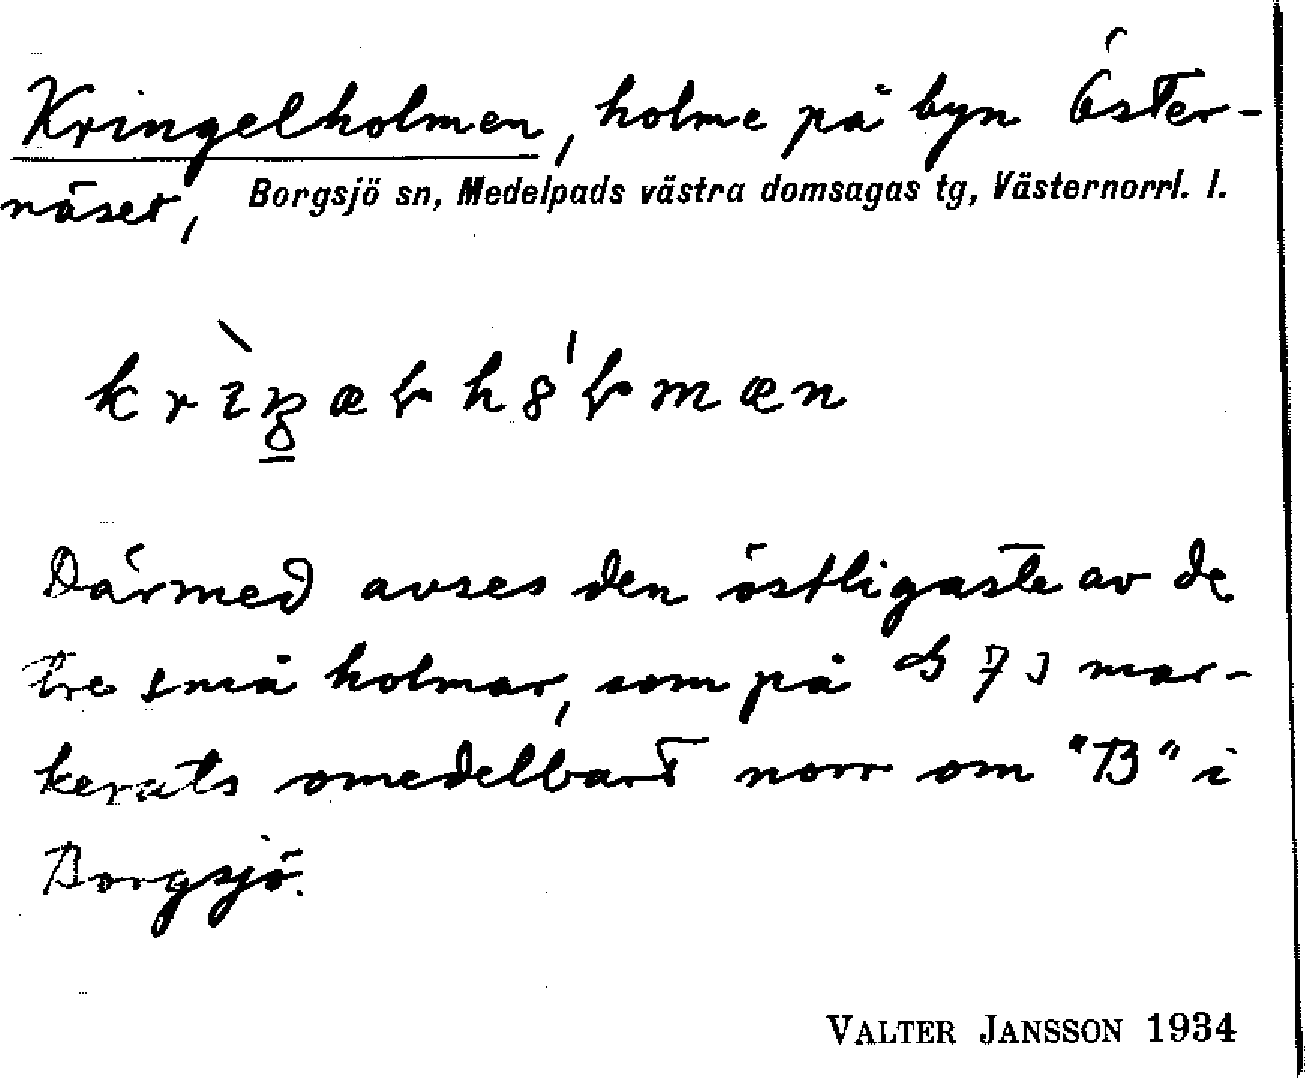 Kringelholmen, holme på byn Öster-
näset, Borgsjö sn, Medelpads västra domsagas tg, Västernorrl. l.
Därmed avses den östligaste av de
tre små holmar, som på mar-
kerats omedelbart norr om "B" i
Borgsjö.
VALTER JANSSON 1934